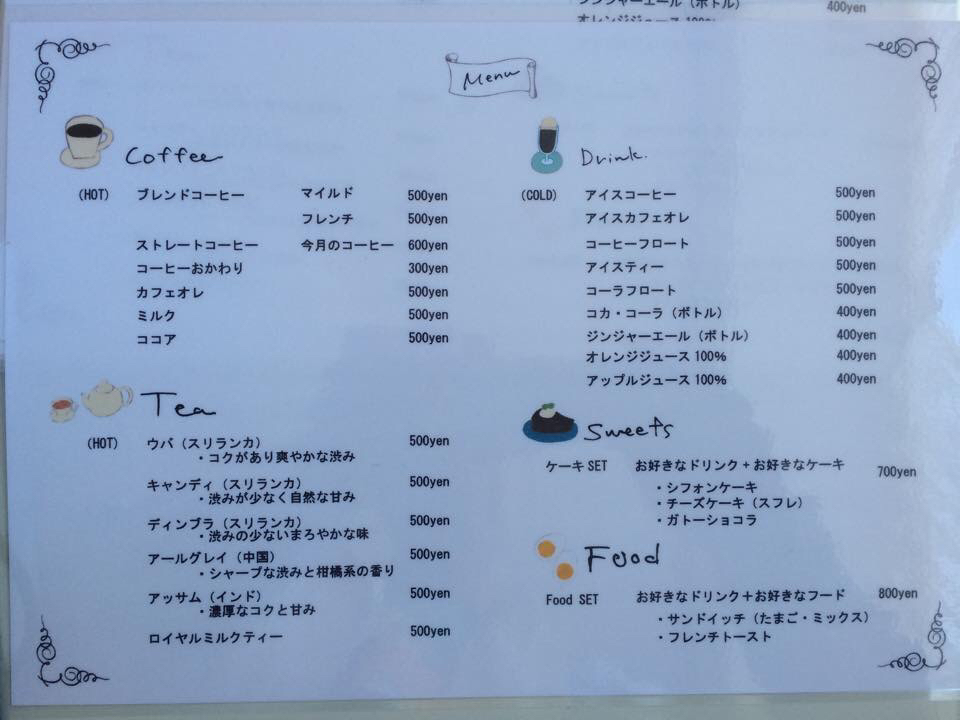 ジンジャーエール（ボトル） 400yen
オレンジジュース 100%
Menu
Coffee
(HOT) ブレンドコーヒー マイルド 500yen
フレンチ 500yen
ストレートコーヒー 今月のコーヒー 600yen
コーヒーおかわり 300yen
カフェオレ 500yen
ミルク 500yen
ココア 500yen
Tea
(HOT) ウバ（スリランカ） 500yen
・コクがあり爽やかな渋み
キャンディ（スリランカ） 500yen
・渋みが少なく自然な甘み
ディンブラ（スリランカ） 500yen
・渋みの少ないまろやかな味
アールグレイ（中国） 500yen
・シャープな渋みと柑橘系の香り
アッサム（インド） 500yen
・濃厚なコクと甘み
ロイヤルミルクティー 500yen
Drink.
(COLD) アイスコーヒー 500yen
アイスカフェオレ 500yen
コーヒーフロート 500yen
アイスティー 500yen
コーラフロート 500yen
コカ・コーラ（ボトル） 400yen
ジンジャーエール（ボトル） 400yen
オレンジジュース 100% 400yen
アップルジュース 100% 400yen
Sweets
ケーキ SET お好きなドリンク＋お好きなケーキ 700yen
・シフォンケーキ
・チーズケーキ（スフレ）
・ガトーショコラ
Food
Food SET お好きなドリンク＋お好きなフード 800yen
・サンドイッチ（たまご・ミックス）
・フレンチトースト